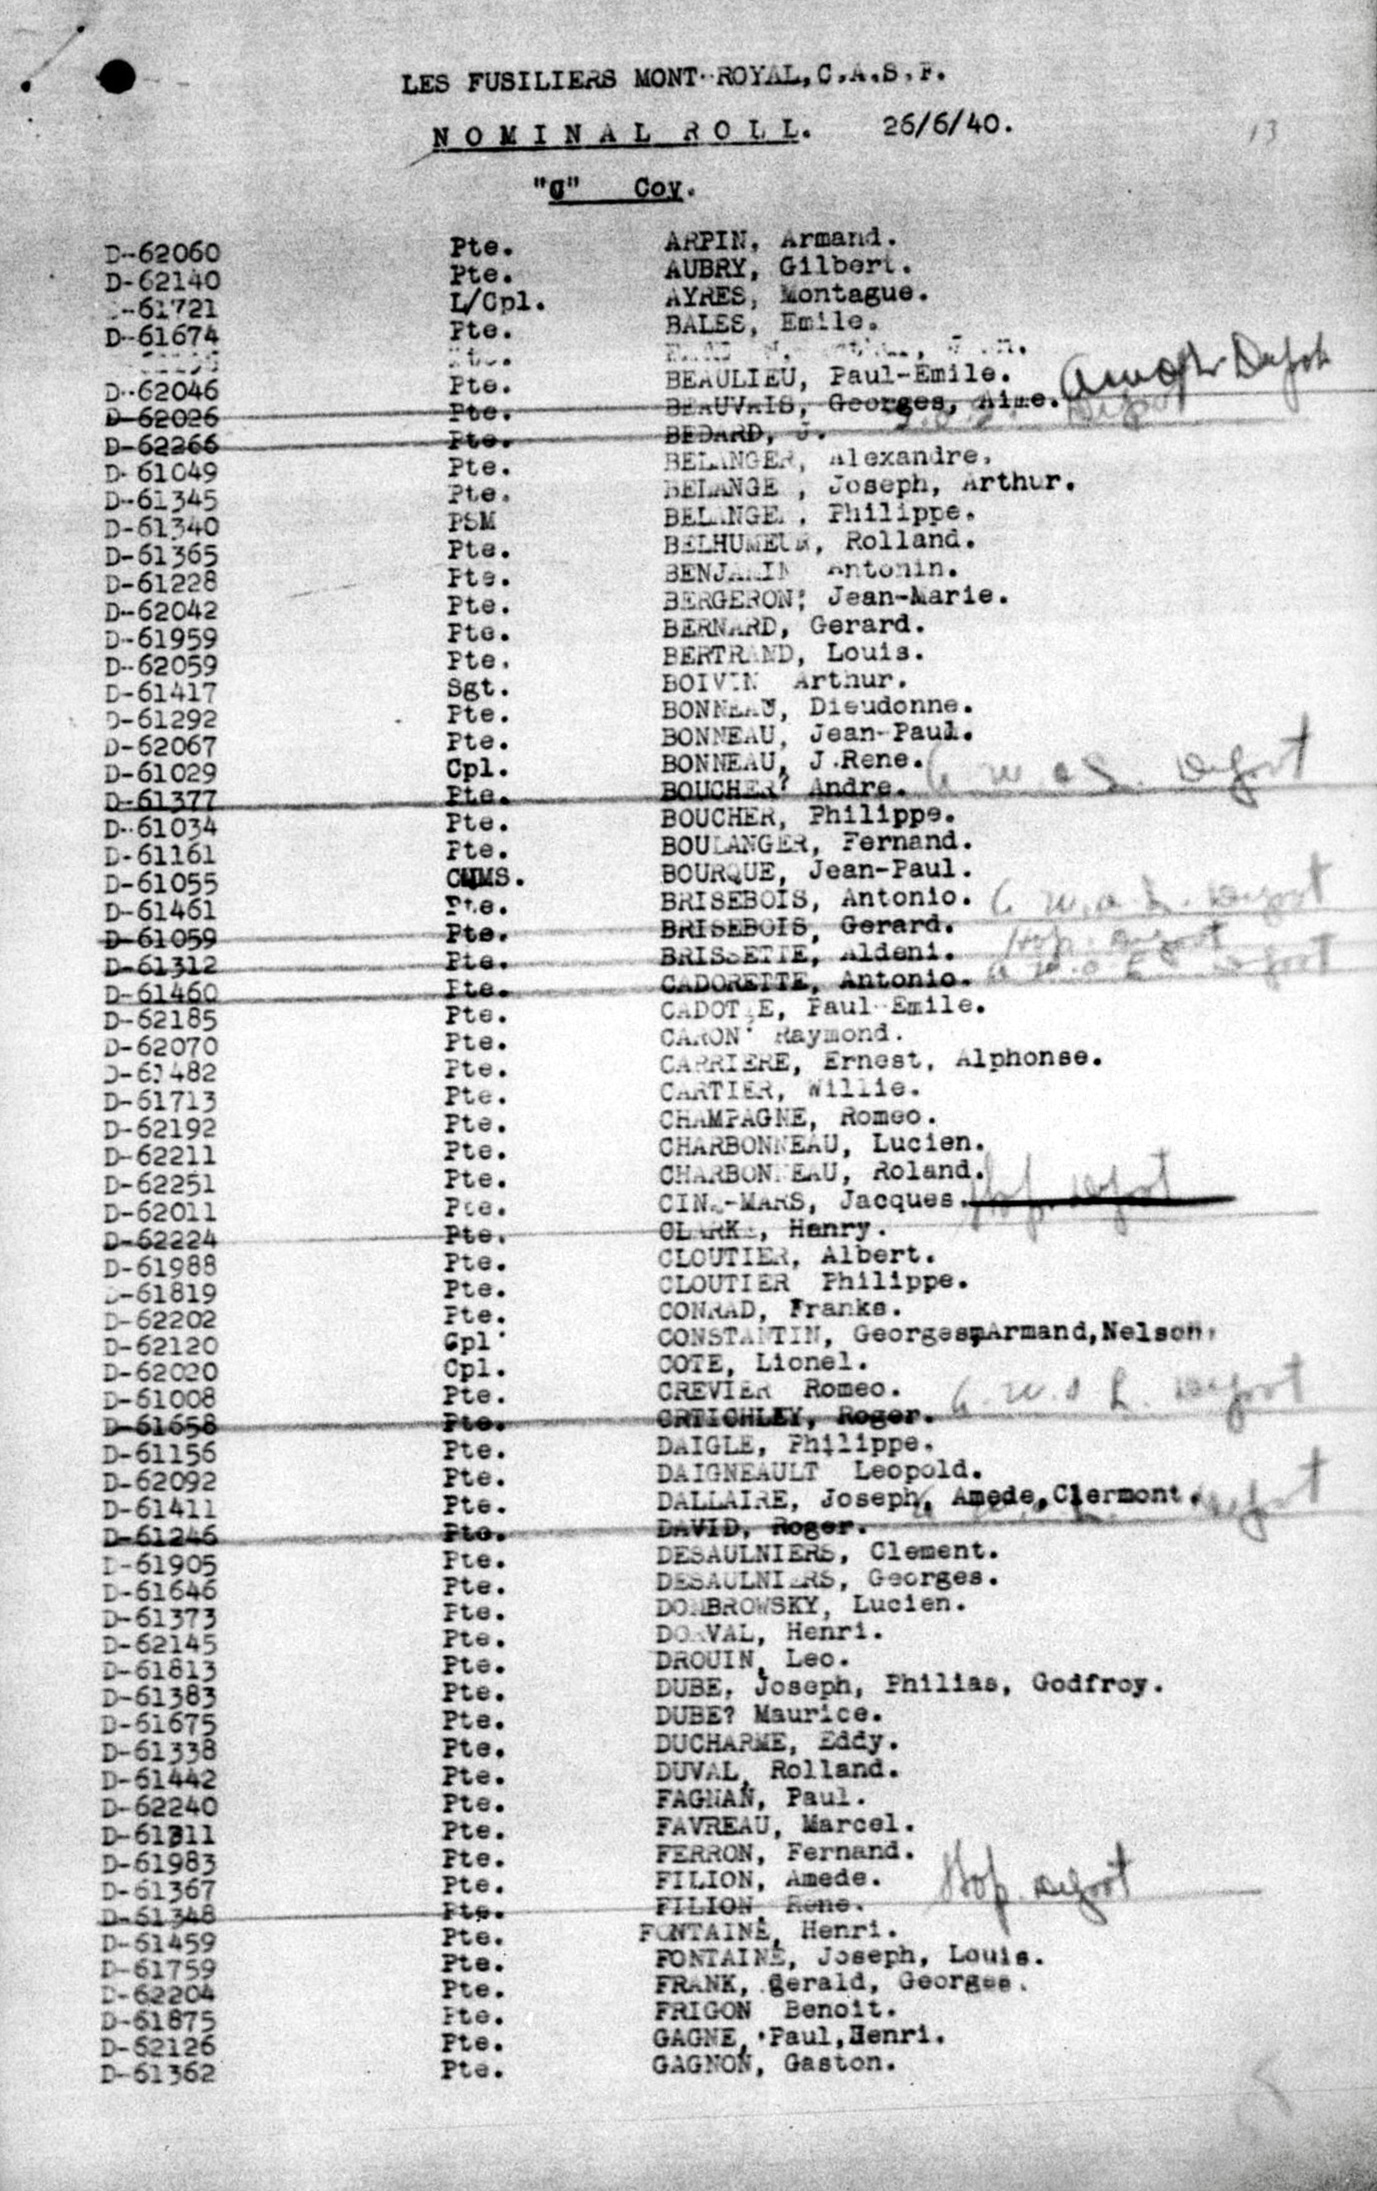 LES FUSILIERS MONT-ROYAL, C.A.S.F.
NOMINAL ROLL. 26/6/40.
13
"C" Coy.
D-62060 Pte. ARPIN, Armand.
D-62140 Pte. AUBRY, Gilbert.
-61721 L/Cpl. AYRES, Montague.
D-61674 Pte. BALES, Emile.
Pte.
D-62046 Pte. BEAULIEU, Paul-Emile.
D-62026 Pte. BEAUVAIS, Georges, Aime. Depot
D-62266 Pte. BEDARD, J. Depot
D-61049 Pte. BELANGER, Alexandre.
D-61345 Pte. BELANGE , Joseph, Arthur.
D-61340 PSM BELANGE , Philippe.
D-61365 Pte. BELHUMEUR, Rolland.
D-61228 Pte. BENJAMIN Antonin.
D-62042 Pte. BERGERON; Jean-Marie.
D-61959 Pte. BERNARD, Gerard.
D-62059 Pte. BERTRAND, Louis.
D-61417 Sgt. BOIVIN Arthur.
D-61292 Pte. BONNEAU, Dieudonne.
D-62067 Pte. BONNEAU, Jean-Paul.
D-61029 Cpl. BONNEAU, J.Rene.
D-61377 Pte. BOUCHER? Andre. A.W.O.L. Depot
D-61034 Pte. BOUCHER, Philippe.
D-61161 Pte. BOULANGER, Fernand.
D-61055 CQMS. BOURQUE, Jean-Paul.
D-61461 Pte. BRISEBOIS, Antonio.
D-61059 Pte. BRISEBOIS, Gerard. A.W.O.L. Depot
D-61312 Pte. BRISSETTE, Aldeni. Hop. Depot
D-61460 Pte. CADORETTE, Antonio. A.W.O.L. Depot
D-62185 Pte. CADOTTE, Paul-Emile.
D-62070 Pte. CARON' Raymond.
D-61482 Pte. CARRIERE, Ernest, Alphonse.
D-61713 Pte. CARTIER, Willie.
D-62192 Pte. CHAMPAGNE, Romeo.
D-62211 Pte. CHARBONNEAU, Lucien.
D-62251 Pte. CHARBONNEAU, Roland.
D-62011 Pte. CINQ-MARS, Jacques.
D-62224 Pte. CLARKE, Henry. Hop. Depot
D-61988 Pte. CLOUTIER, Albert.
D-61819 Pte. CLOUTIER Philippe.
D-62202 Pte. CONRAD, Franks.
D-62120 Cpl' CONSTANTIN, Georges,Armand,Nelson.
D-62020 Cpl. COTE, Lionel.
D-61008 Pte. CREVIER Romeo.
D-61658 Pte. CRTICHLEY, Roger. A.W.O.L. Depot
D-61156 Pte. DAIGLE, Philippe.
D-62092 Pte. DAIGNEAULT Leopold.
D-61411 Pte. DALLAIRE, Joseph, Amede,Clermont.
D-61246 Pte. DAVID, Roger. A.W.O.L. Depot
D-61905 Pte. DESAULNIERS, Clement.
D-61646 Pte. DESAULNIERS, Georges.
D-61373 Pte. DOMBROWSKY, Lucien.
D-62145 Pte. DORVAL, Henri.
D-61813 Pte. DROUIN, Leo.
D-61383 Pte. DUBE, Joseph, Philias, Godfroy.
D-61675 Pte. DUBE? Maurice.
D-61338 Pte. DUCHARME, Eddy.
D-61442 Pte. DUVAL, Rolland.
D-62240 Pte. FAGNAN, Paul.
D-61311 Pte. FAVREAU, Marcel.
D-61983 Pte. FERRON, Fernand.
D-61367 Pte. FILION, Amede.
D-61348 Pte. FILION, Rene. Hop. Depot
D-61459 Pte. FONTAINE, Henri.
D-61759 Pte. FONTAINE, Joseph, Louis.
D-62204 Pte. FRANK, Gerald, Georges.
D-61875 Pte. FRIGON Benoit.
D-62126 Pte. GAGNE, Paul,Henri.
D-61362 Pte. GAGNON, Gaston.